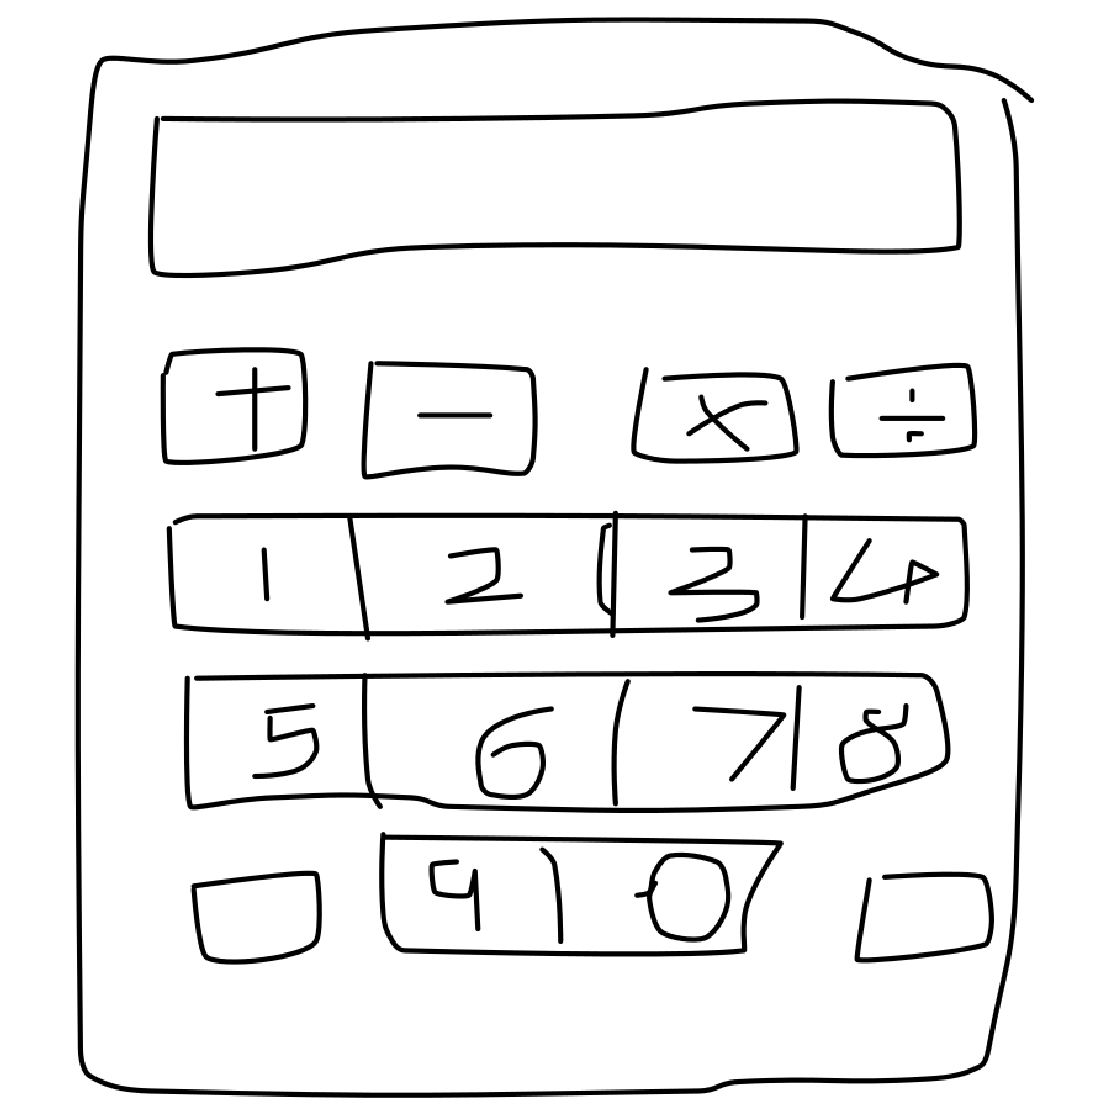 + − × ÷
1 2 3 4
5 6 7 8
9 0